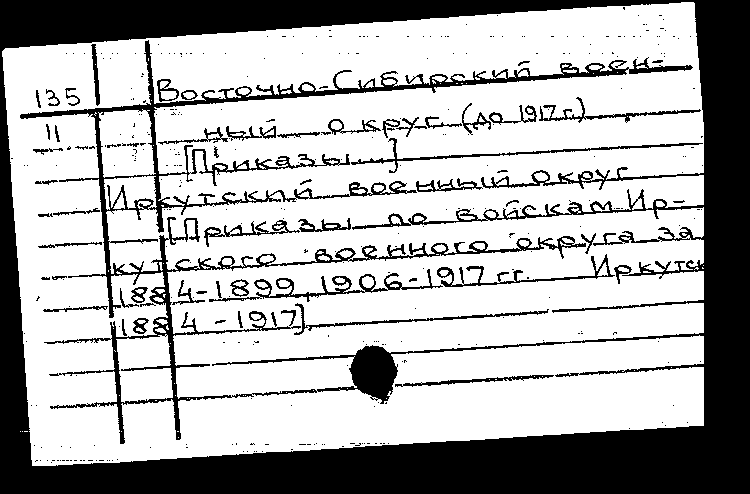 135 Восточно-Сибирский воен-
11 ный округ (до 1917 г.)
[Приказы...]
Иркутский военный округ
[Приказы по войскам Ир-
кутского военного округа за
1884-1899, 1906-1917 гг. Иркутск
1884-1917].